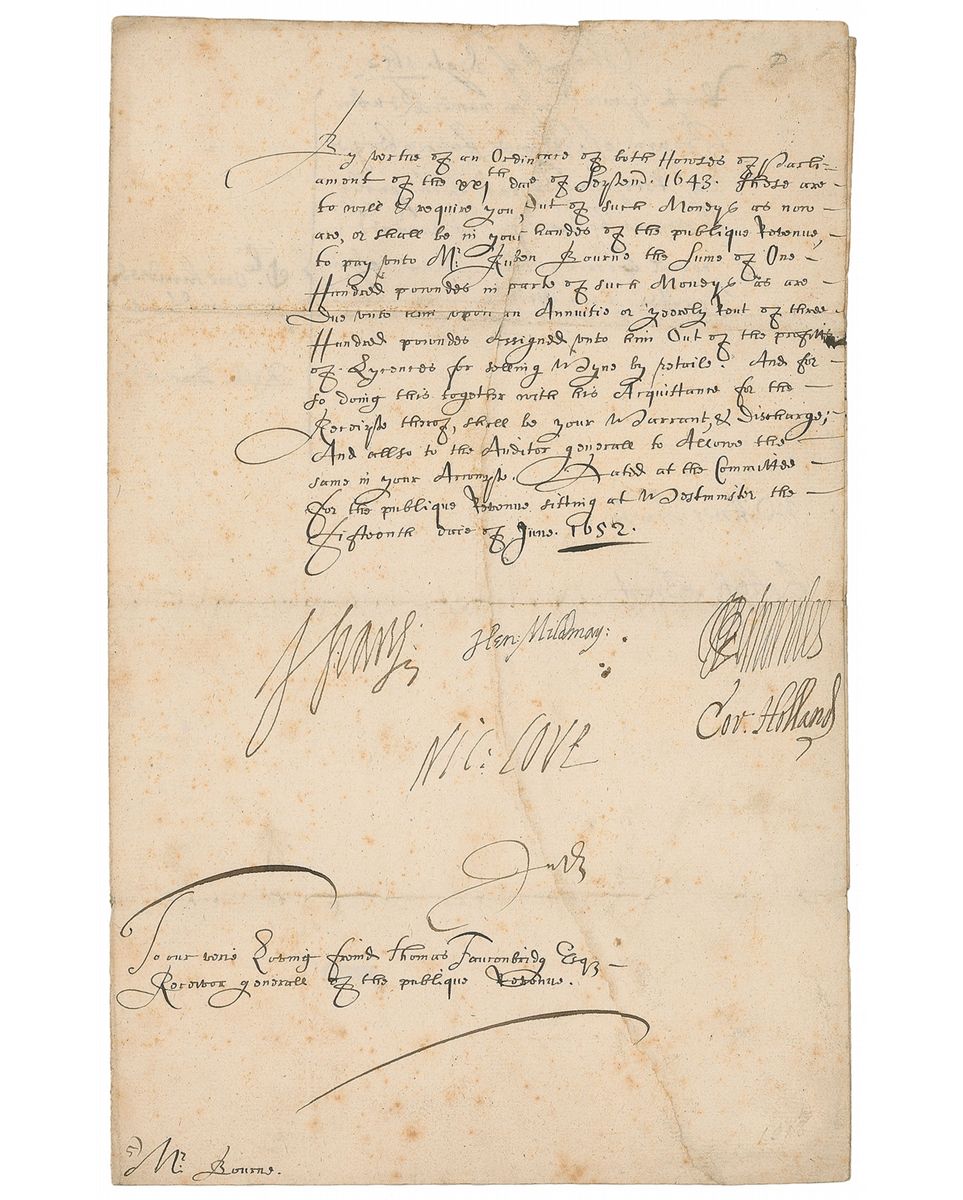 By vertue of an Ordinance of both Howses of Parli-
ament of the xxjth daie of Septem. 1643. These are
to will & require you, Out of such Moneys as now
are, or shall be in your handes of the publique Revenue,
to pay vnto Mr. Ruben Bourne the Sume of One
Hundred powndes in parte of such Moneys as are
Due vnto him vpon an Annuitie or yeerely Rent of three
Hundred powndes Assigned vnto him Out of the profitts
of Lycences for selling Wyne by retaile. And for
so doing this together with his Acquittance for the
Receipte thereof, shall be your Warrant, & Discharge;
And allso to the Auditor generall to Allowe the
same in your Accompte. Dated at the Committee
for the publique Revenue sitting at Westminster the
Fifteenth daie of June. 1652.
Hen: Mildmay:
Cor. Holland
Nic: Love
To our verie Loving freind Thomas Fauconbridg Esqr
Receivor generall of the publique Revenue.
Mr. Bourne.